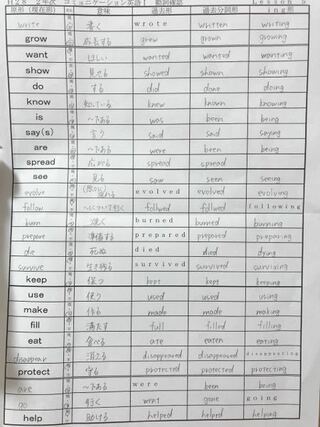 H28 2年次 コミュニケーション英語Ⅰ 動詞確認 Lesson 5
原形(現在形) 意味 過去形 過去分詞形 ing形
write 書く wrote written writing
grow 成長する grew grown growing
want ほしい wanted wanted wanting
show 見せる showed shown showing
do する did done doing
know 知っている knew known knowing
is ~である was been being
say(s) 言う said said saying
are ~である were been being
spread 広がる spread spread
see 見る saw seen seeing
evolve evolved evolved evolving
follow followed followed following
burn 焼く burned burned burning
prepare 準備する prepared prepared preparing
die 死ぬ died died dying
survive 生き残る survived survived surviving
keep 保つ kept kept keeping
use 使う used used using
make 作る made made making
fill 満たす full filled filling
eat 食べる ate eaten eating
disappear 消える disappeared disappeared disappearing
protect 守る protected protected protecting
are ~である were been being
go 行く went gone going
help 助ける helped helped helping